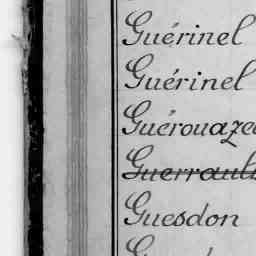 Guérinel
Guérinel
Guérouaze
Guerrault
Guesdon